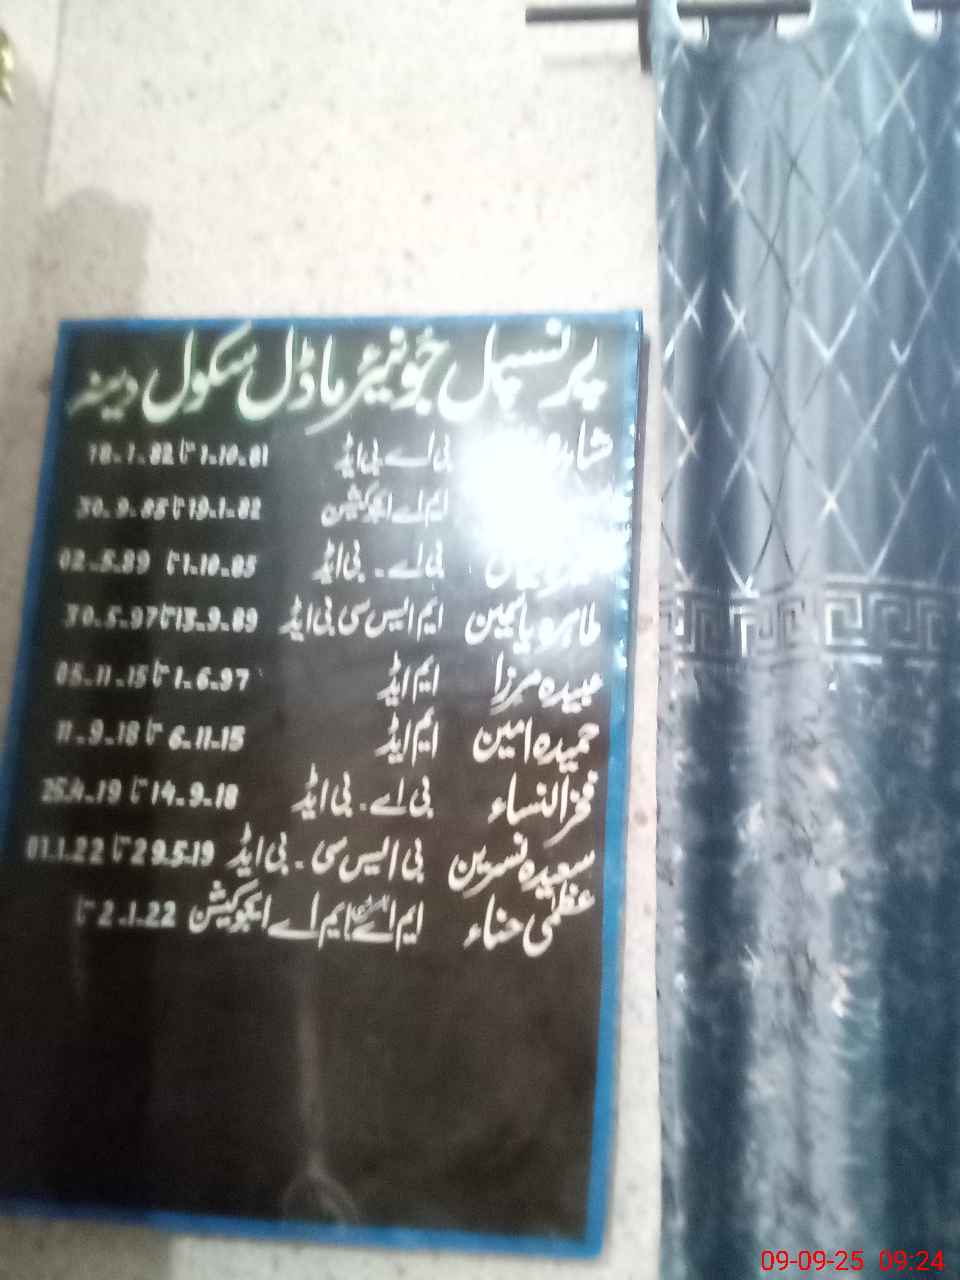 پرنسپل جونیئر ماڈل سکول دینہ
بی اے بی ایڈ 1.10.81 تا 18.1.82
ایم اے ایجوکیشن 19.1.82 تا 30.9.85
بی اے۔ بی ایڈ 1.10.85 تا 02.5.89
طاہرہ یاسمین ایم ایس سی بی ایڈ 13.9.89 تا 30.5.97
عبیدہ مرزا ایم ایڈ 1.6.97 تا 05.11.15
حمیدہ امین ایم ایڈ 6.11.15 تا 11.9.18
فخر النساء بی اے۔ بی ایڈ 14.9.18 تا 25.4.19
سعیدہ نسرین بی ایس سی۔ بی ایڈ 29.5.19 تا 01.1.22
عظمی حناء ایم اے ایم اے ایجوکیشن 2.1.22 تا
09-09-25 09:24